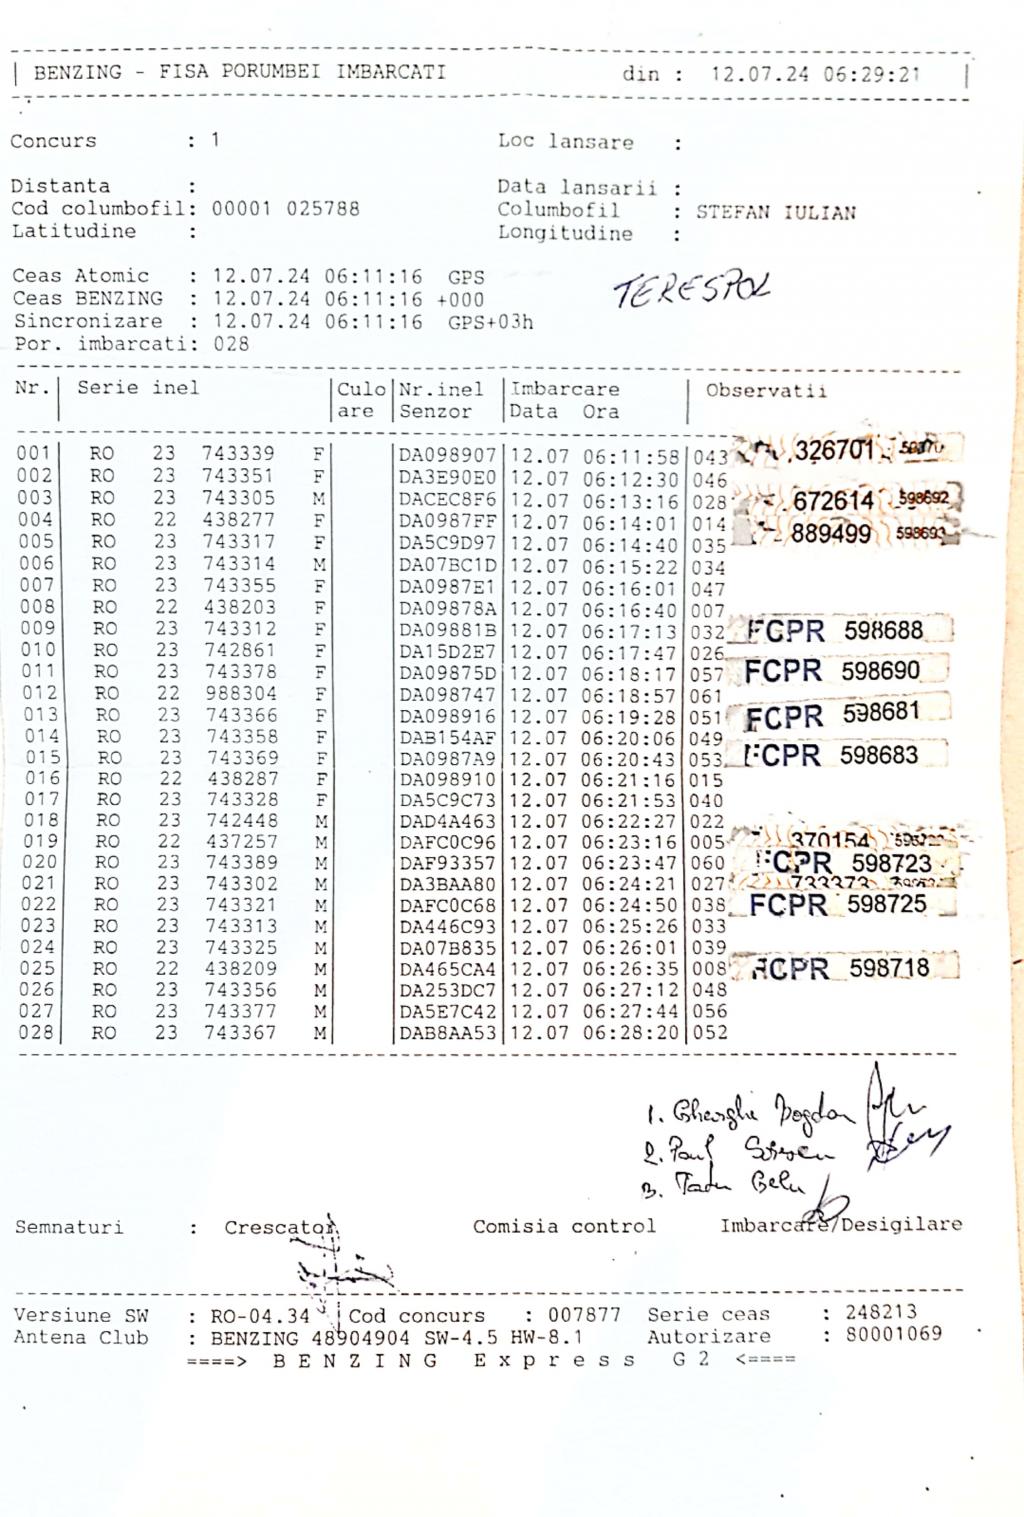 BENZING - FISA PORUMBEI IMBARCATI din : 12.07.24 06:29:21
Concurs : 1 Loc lansare :
Distanta : Data lansarii :
Cod columbofil: 00001 025788 Columbofil : STEFAN IULIAN
Latitudine : Longitudine :
Ceas Atomic : 12.07.24 06:11:16 GPS
TERESPOL
Ceas BENZING : 12.07.24 06:11:16 +000
Sincronizare : 12.07.24 06:11:16 GPS+03h
Por. imbarcati: 028
Nr. Serie inel Culo Nr.inel Imbarcare Observatii
are Senzor Data Ora
001 RO 23 743339 F DA098907 12.07 06:11:58 043 326701
002 RO 23 743351 F DA3E90E0 12.07 06:12:30 046
003 RO 23 743305 M DACEC8F6 12.07 06:13:16 028 672614 598692
004 RO 22 438277 F DA0987FF 12.07 06:14:01 014
005 RO 23 743317 F DA5C9D97 12.07 06:14:40 035 889499 598693
006 RO 23 743314 M DA07BC1D 12.07 06:15:22 034
007 RO 23 743355 F DA0987E1 12.07 06:16:01 047
008 RO 22 438203 F DA09878A 12.07 06:16:40 007
009 RO 23 743312 F DA09881B 12.07 06:17:13 032 FCPR 598688
010 RO 23 742861 F DA15D2E7 12.07 06:17:47 026
011 RO 23 743378 F DA09875D 12.07 06:18:17 057 FCPR 598690
012 RO 22 988304 F DA098747 12.07 06:18:57 061
013 RO 23 743366 F DA098916 12.07 06:19:28 051 FCPR 598681
014 RO 23 743358 F DAB154AF 12.07 06:20:06 049
015 RO 23 743369 F DA0987A9 12.07 06:20:43 053 FCPR 598683
016 RO 22 438287 F DA098910 12.07 06:21:16 015
017 RO 23 743328 F DA5C9C73 12.07 06:21:53 040
018 RO 23 742448 M DAD4A463 12.07 06:22:27 022
019 RO 22 437257 M DAFC0C96 12.07 06:23:16 005 370154
020 RO 23 743389 M DAF93357 12.07 06:23:47 060 FCPR 598723
021 RO 23 743302 M DA3BAA80 12.07 06:24:21 027
022 RO 23 743321 M DAFC0C68 12.07 06:24:50 038 FCPR 598725
023 RO 23 743313 M DA446C93 12.07 06:25:26 033
024 RO 23 743325 M DA07B835 12.07 06:26:01 039
025 RO 22 438209 M DA465CA4 12.07 06:26:35 008 FCPR 598718
026 RO 23 743356 M DA253DC7 12.07 06:27:12 048
027 RO 23 743377 M DA5E7C42 12.07 06:27:44 056
028 RO 23 743367 M DAB8AA53 12.07 06:28:20 052
1. Gheorghe Bogdan
2. Paul
3.
Semnaturi : Crescator Comisia control Imbarcare/Desigilare
Versiune SW : RO-04.34 Cod concurs : 007877 Serie ceas : 248213
Antena Club : BENZING 48904904 SW-4.5 HW-8.1 Autorizare : 80001069
====> B E N Z I N G E x p r e s s G 2 <====